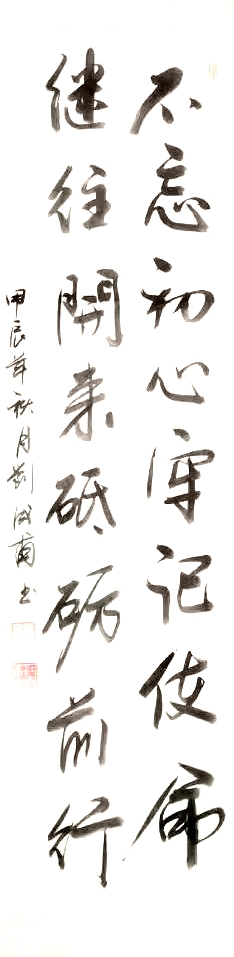 不忘初心牢记使命
继往開来砥砺前行
甲辰年秋月劉成甫书